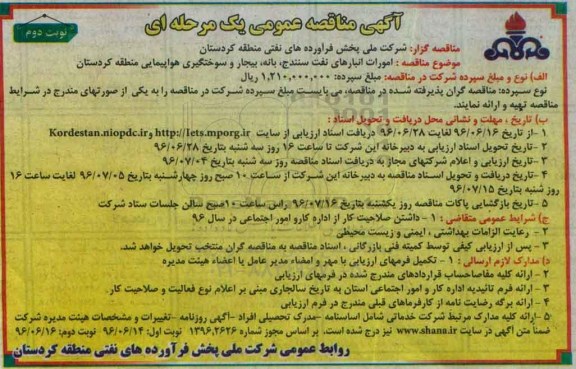 آگهی مناقصه عمومی یک مرحله ای
نوبت دوم
مناقصه گزار: شرکت ملی پخش فرآورده های نفتی منطقه کردستان
موضوع مناقصه : امورات انبارهای نفت سنندج، بانه، بیجار و سوختگیری هواپیمایی منطقه کردستان
الف) نوع و مبلغ سپرده شرکت در مناقصه: مبلغ سپرده: ۱,۲۱۰,۰۰۰,۰۰۰ ریال
نوع سپرده: مناقصه گران پذیرفته شده در مناقصه، می بایست مبلغ سپرده شرکت در مناقصه را به یکی از صورتهای مندرج در شرایط
مناقصه تهیه و ارائه نمایند.
ب) تاریخ ، مهلت و نشانی محل دریافت و تحویل اسناد :
۱ -از تاریخ ۹۶/۰۶/۱۶ لغایت ۹۶/۰۶/۲۸ دریافت اسناد ارزیابی از سایت http://Iets.mporg.ir و Kordestan.niopdc.ir
۲ -تاریخ تحویل اسناد ارزیابی به دبیرخانه این شرکت تا ساعت ۱۶ روز سه شنبه بتاریخ ۹۶/۰۶/۲۸
۳ -تاریخ ارزیابی و اعلام شرکتهای مجاز به دریافت اسناد مناقصه روز سه شنبه بتاریخ ۹۶/۰۷/۰۴
۴ -تاریخ دریافت و تحویل اسناد مناقصه به دبیرخانه این شرکت از ساعت ۱۰ صبح روز چهارشنبه بتاریخ ۹۶/۰۷/۰۵ لغایت ساعت ۱۶
روز شنبه بتاریخ ۹۶/۰۷/۱۵
۵ -تاریخ بازگشایی پاکات مناقصه روز یکشنبه بتاریخ ۹۶/۰۷/۱۶ راس ساعت ۱۰صبح سالن جلسات ستاد شرکت
ج) شرایط عمومی متقاضی : ۱ - داشتن صلاحیت کار از اداره کارو امور اجتماعی در سال ۹۶
۲ - رعایت الزامات بهداشتی ، ایمنی و زیست محیطی
۳ - پس از ارزیابی کیفی توسط کمیته فنی بازرگانی ، اسناد مناقصه به مناقصه گران منتخب تحویل خواهد شد.
د) مدارک لازم ارسالی : ۱ - تکمیل فرمهای ارزیابی با مهر و امضاء مدیر عامل یا اعضاء هیئت مدیره
۲ - ارائه کلیه مفاصاحساب قراردادهای مندرج شده در فرمهای ارزیابی
۳ - ارائه فرم تائیدیه اداره کار و امور اجتماعی استان به تاریخ سالجاری مبنی بر اعلام نوع فعالیت و صلاحیت کار
۴ - ارائه برگه رضایت نامه از کارفرماهای قبلی مندرج در فرم ارزیابی
۵ -ارائه کلیه مدارک مرتبط شرکت خدماتی شامل اساسنامه -مدرک تحصیلی افراد -آگهی روزنامه -تغییرات و مشخصات هیئت مدیره شرکت
ضمناً متن آگهی در سایت www.shana.ir نیز درج شده است. بر اساس مجوز شماره ۱۳۹۶.۲۶۲۶ نوبت اول: ۹۶/۰۶/۱۴ نوبت دوم: ۹۶/۰۶/۱۶
روابط عمومی شرکت ملی پخش فرآورده های نفتی منطقه کردستان